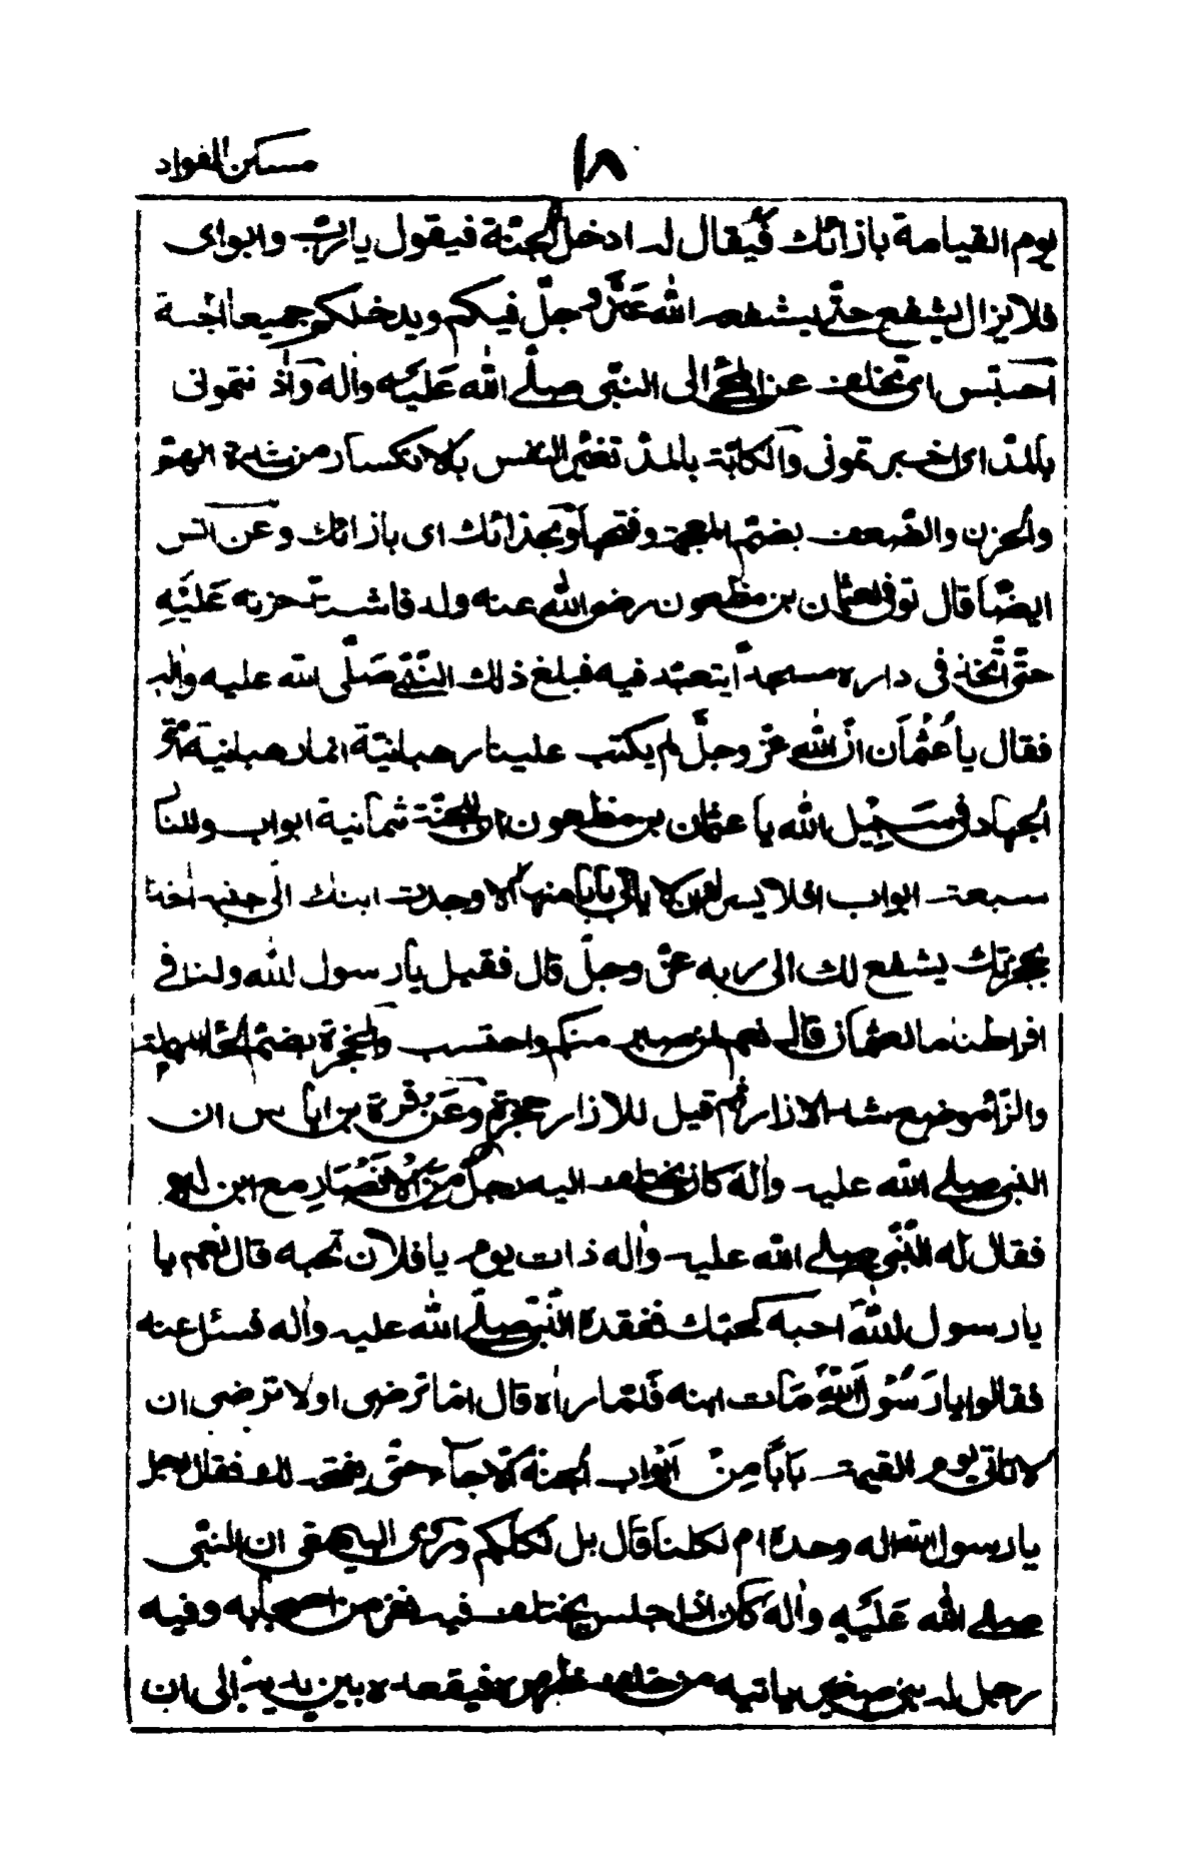 مسكن الفواد
١٨
يوم القيامة بازائك فيقال له ادخل الجنّة فيقول يا رب وابواى
فلا يزال يشفع حتّى يشفعه الله عَزّ وجلّ فيكم ويدخلكم جميعا الجنة
احتبس اى تخلف عن المجئ الى النبّى صلّى الله عَليْه واٰله وآذنتمونى
بالمدّ اى اخبرتمونى والكابَة بالمدّ تغيّر النفس بالانكسار من شدة الهمّ
والحزن والضّعف بضمّ المعجمة وفتحها وبحذائك اى بازائك وعن انس
ايضًا قال توفى لعثمان بن مظعون رضى الله عنه ولد فاشتدّ حزنه عَليْهِ
حتّى اتّخذ فى داره مسجدًا يتعبّد فيه فبلغ ذلك النّبّى صَلّى الله عليه واٰله
فقال يا عُثمَان انّ الله عزّ وجلّ لم يكتب علينا رهبانيّة انما رهبانية امّتى
الجهاد فى سَبِيْل الله يا عثمان بن مظعون ان للجنّة ثمانية ابواب وللنار
سبعة ابواب افلا يسرك ان لا تاتى بابا منها الا وجدت ابنك الى جنبه اخذا
بحجزتك يشفع لك الى ربه عزّ وجلّ قال فقيل يا رسول الله ولنا فى
افراطنا ما لعثمان قال نعم لمن صبر منكم واحتسب والحجزة بضم الحاء المهملة
والزّاء موضع شد الازار ثم قيل للازار حجزة وعَن قرة بن اياس ان
النبى صلى الله عليه واٰله كان يختلف اليه رجلٌ مِنَ الاَنْصَارِ مع ابن له
فقال له النّبّى صلى الله عليه واٰله ذات يوم يا فلان تحبه قال نعم يا
يا رسول الله احبه كحبّك ففقده النّبّى صلّى الله عليه واٰله فسئل عنه
فقالوا يا رَسُوْلَ اللهِ مَات ابنه فَلمّا راٰه قال امّا ترضى او لا ترضى ان
لا تاتى يوم القيمة بَابًا مِنْ اَبْواب الجنة الّا جآء حتّى يفتحه لك فقال رجل
يا رسول الله اله وحده ام لكلنا قال بل لكلكم وروى البيهقى ان النبّى
صلى الله عَليْهِ واٰله كان اذا جلس يختلف فيه نفر من اصحابه وفيه
رجل له بنى صغير ياتيه من خلف ظهره فيقعده بين يديه الى ان